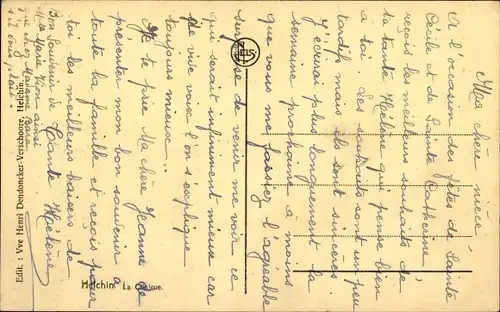 Ma chère nièce.
A l'occasion des fêtes de Sainte
Cécile et de Sainte Catherine
reçois les meilleurs souhaits de
ta tante Hélène qui pense bien
à toi Les souhaits sont un peu
tardifs mais ils sont sincères
J'écrirai plus longuement la
semaine prochaine à moins
que vous me fassiez l'agréable
surprise de venir me voir ce
qui serait infiniment mieux car
de vive voix l'on s'explique
toujours mieux.
Je te prie Ma chère Jeanne de
présenter mon bon souvenir à
toute la famille et reçois pour
toi les meilleurs baisers de
Tante Hélène
Bon Souvenir à
Mlle Marie ainsi
que chez Madame
s'il vous plait.
Edit. : Vve Henri Dendoncker-Verschoore, Helchin.
Helchin La Cuisine.